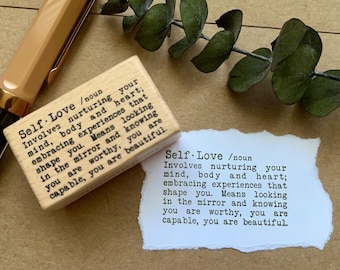 Self·Love /noun
Involves nurturing your
mind, body and heart;
embracing experiences that
shape you. Means looking
in the mirror and knowing
you are worthy, you are
capable, you are beautiful.
Self·Love /noun
Involves nurturing your
mind, body and heart;
embracing experiences that
shape you. Means looking
in the mirror and knowing
you are worthy, you are
capable, you are beautiful.